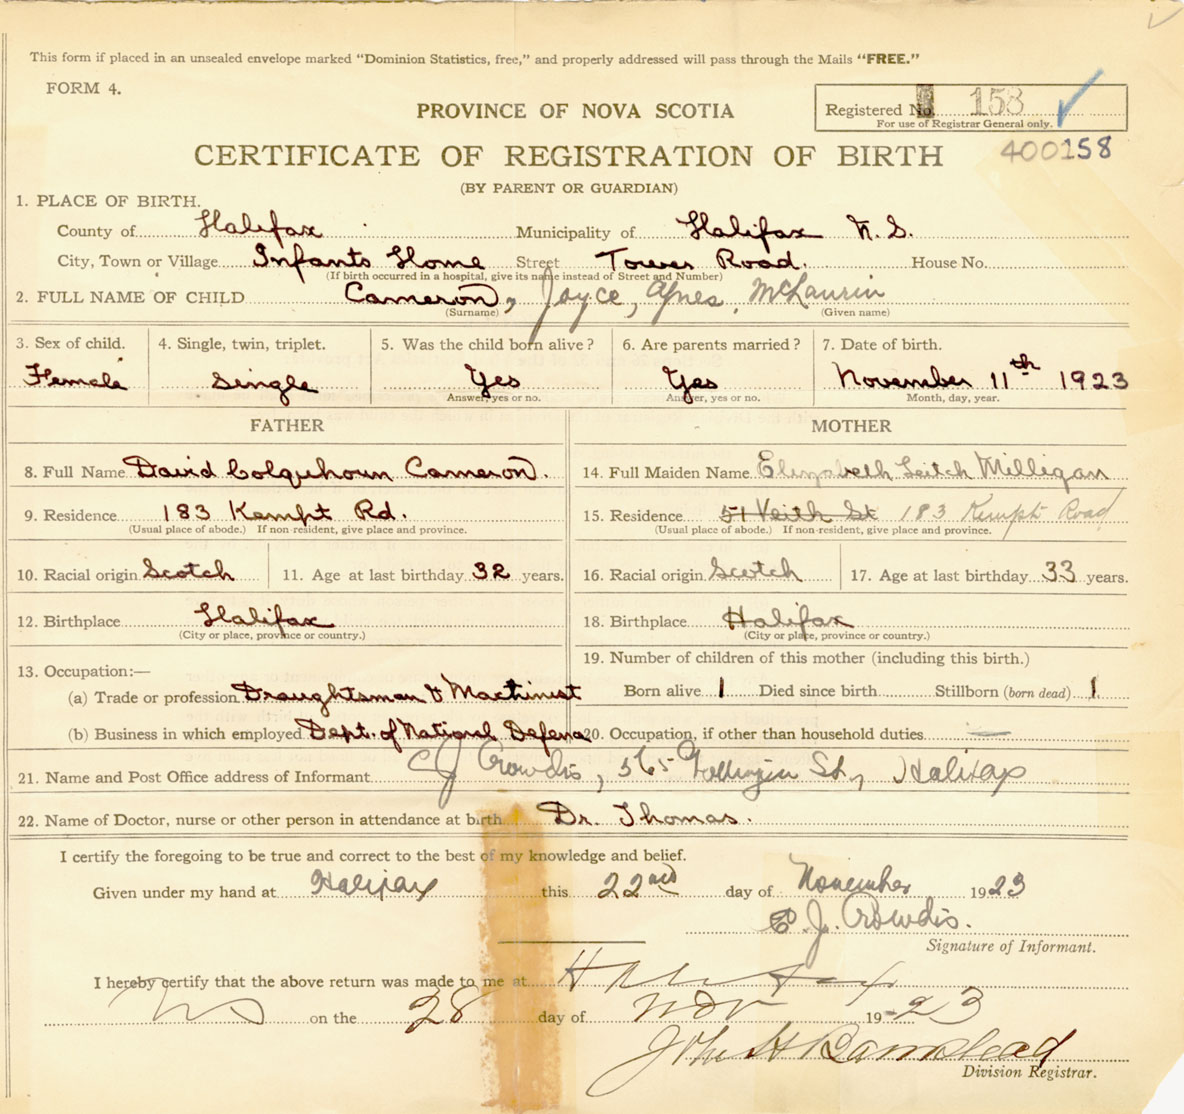 This form if placed in an unsealed envelope marked "Dominion Statistics, free," and properly addressed will pass through the Mails "FREE."
FORM 4.
PROVINCE OF NOVA SCOTIA
Registered No. 158
For use of Registrar General only.
CERTIFICATE OF REGISTRATION OF BIRTH
400158
(BY PARENT OR GUARDIAN)
1. PLACE OF BIRTH.
County of Halifax Municipality of Halifax N.S.
City, Town or Village Infants Home Street Tower Road. House No.
(If birth occurred in a hospital, give its name instead of Street and Number)
2. FULL NAME OF CHILD Cameron, Joyce, Agnes, McLaurin
(Surname) (Given name)
3. Sex of child. 4. Single, twin, triplet. 5. Was the child born alive? 6. Are parents married? 7. Date of birth.
Female Single Yes Yes November 11th 1923
Answer, yes or no. Answer, yes or no. Month, day, year.
FATHER MOTHER
8. Full Name David Colquhoun Cameron. 14. Full Maiden Name Elizabeth Leitch Milligan
9. Residence 183 Kempt Rd. 15. Residence 51 Veith St 183 Kempt Road
(Usual place of abode.) If non-resident, give place and province. (Usual place of abode.) If non-resident, give place and province.
10. Racial origin Scotch 11. Age at last birthday 32 years. 16. Racial origin Scotch 17. Age at last birthday 33 years.
12. Birthplace Halifax 18. Birthplace Halifax
(City or place, province or country.) (City or place, province or country.)
13. Occupation:— 19. Number of children of this mother (including this birth.)
(a) Trade or profession Draughtsman & Machinist Born alive 1 Died since birth Stillborn (born dead) 1
(b) Business in which employed Dept. of National Defence 20. Occupation, if other than household duties —
21. Name and Post Office address of Informant C J Crowdis, 565 St., Halifax
22. Name of Doctor, nurse or other person in attendance at birth Dr. Thomas.
I certify the foregoing to be true and correct to the best of my knowledge and belief.
Given under my hand at Halifax this 22nd day of November 1923
C. J. Crowdis.
Signature of Informant.
I hereby certify that the above return was made to me at Halifax
NS on the 28 day of Nov 1923
John H Barnstead
Division Registrar.